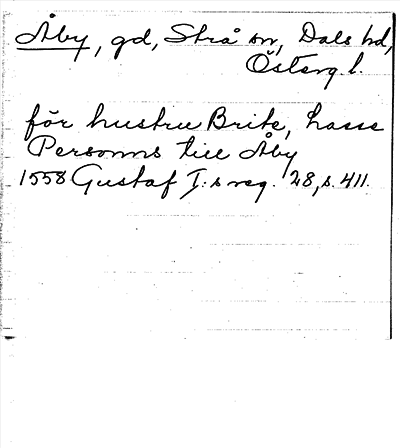 Åby, gd, Strå sn, Dals hd,
Österg l.
för hustru Brite, Lasse
Personns till Åby
1558 Gustaf I:s reg. 28, s. 411.